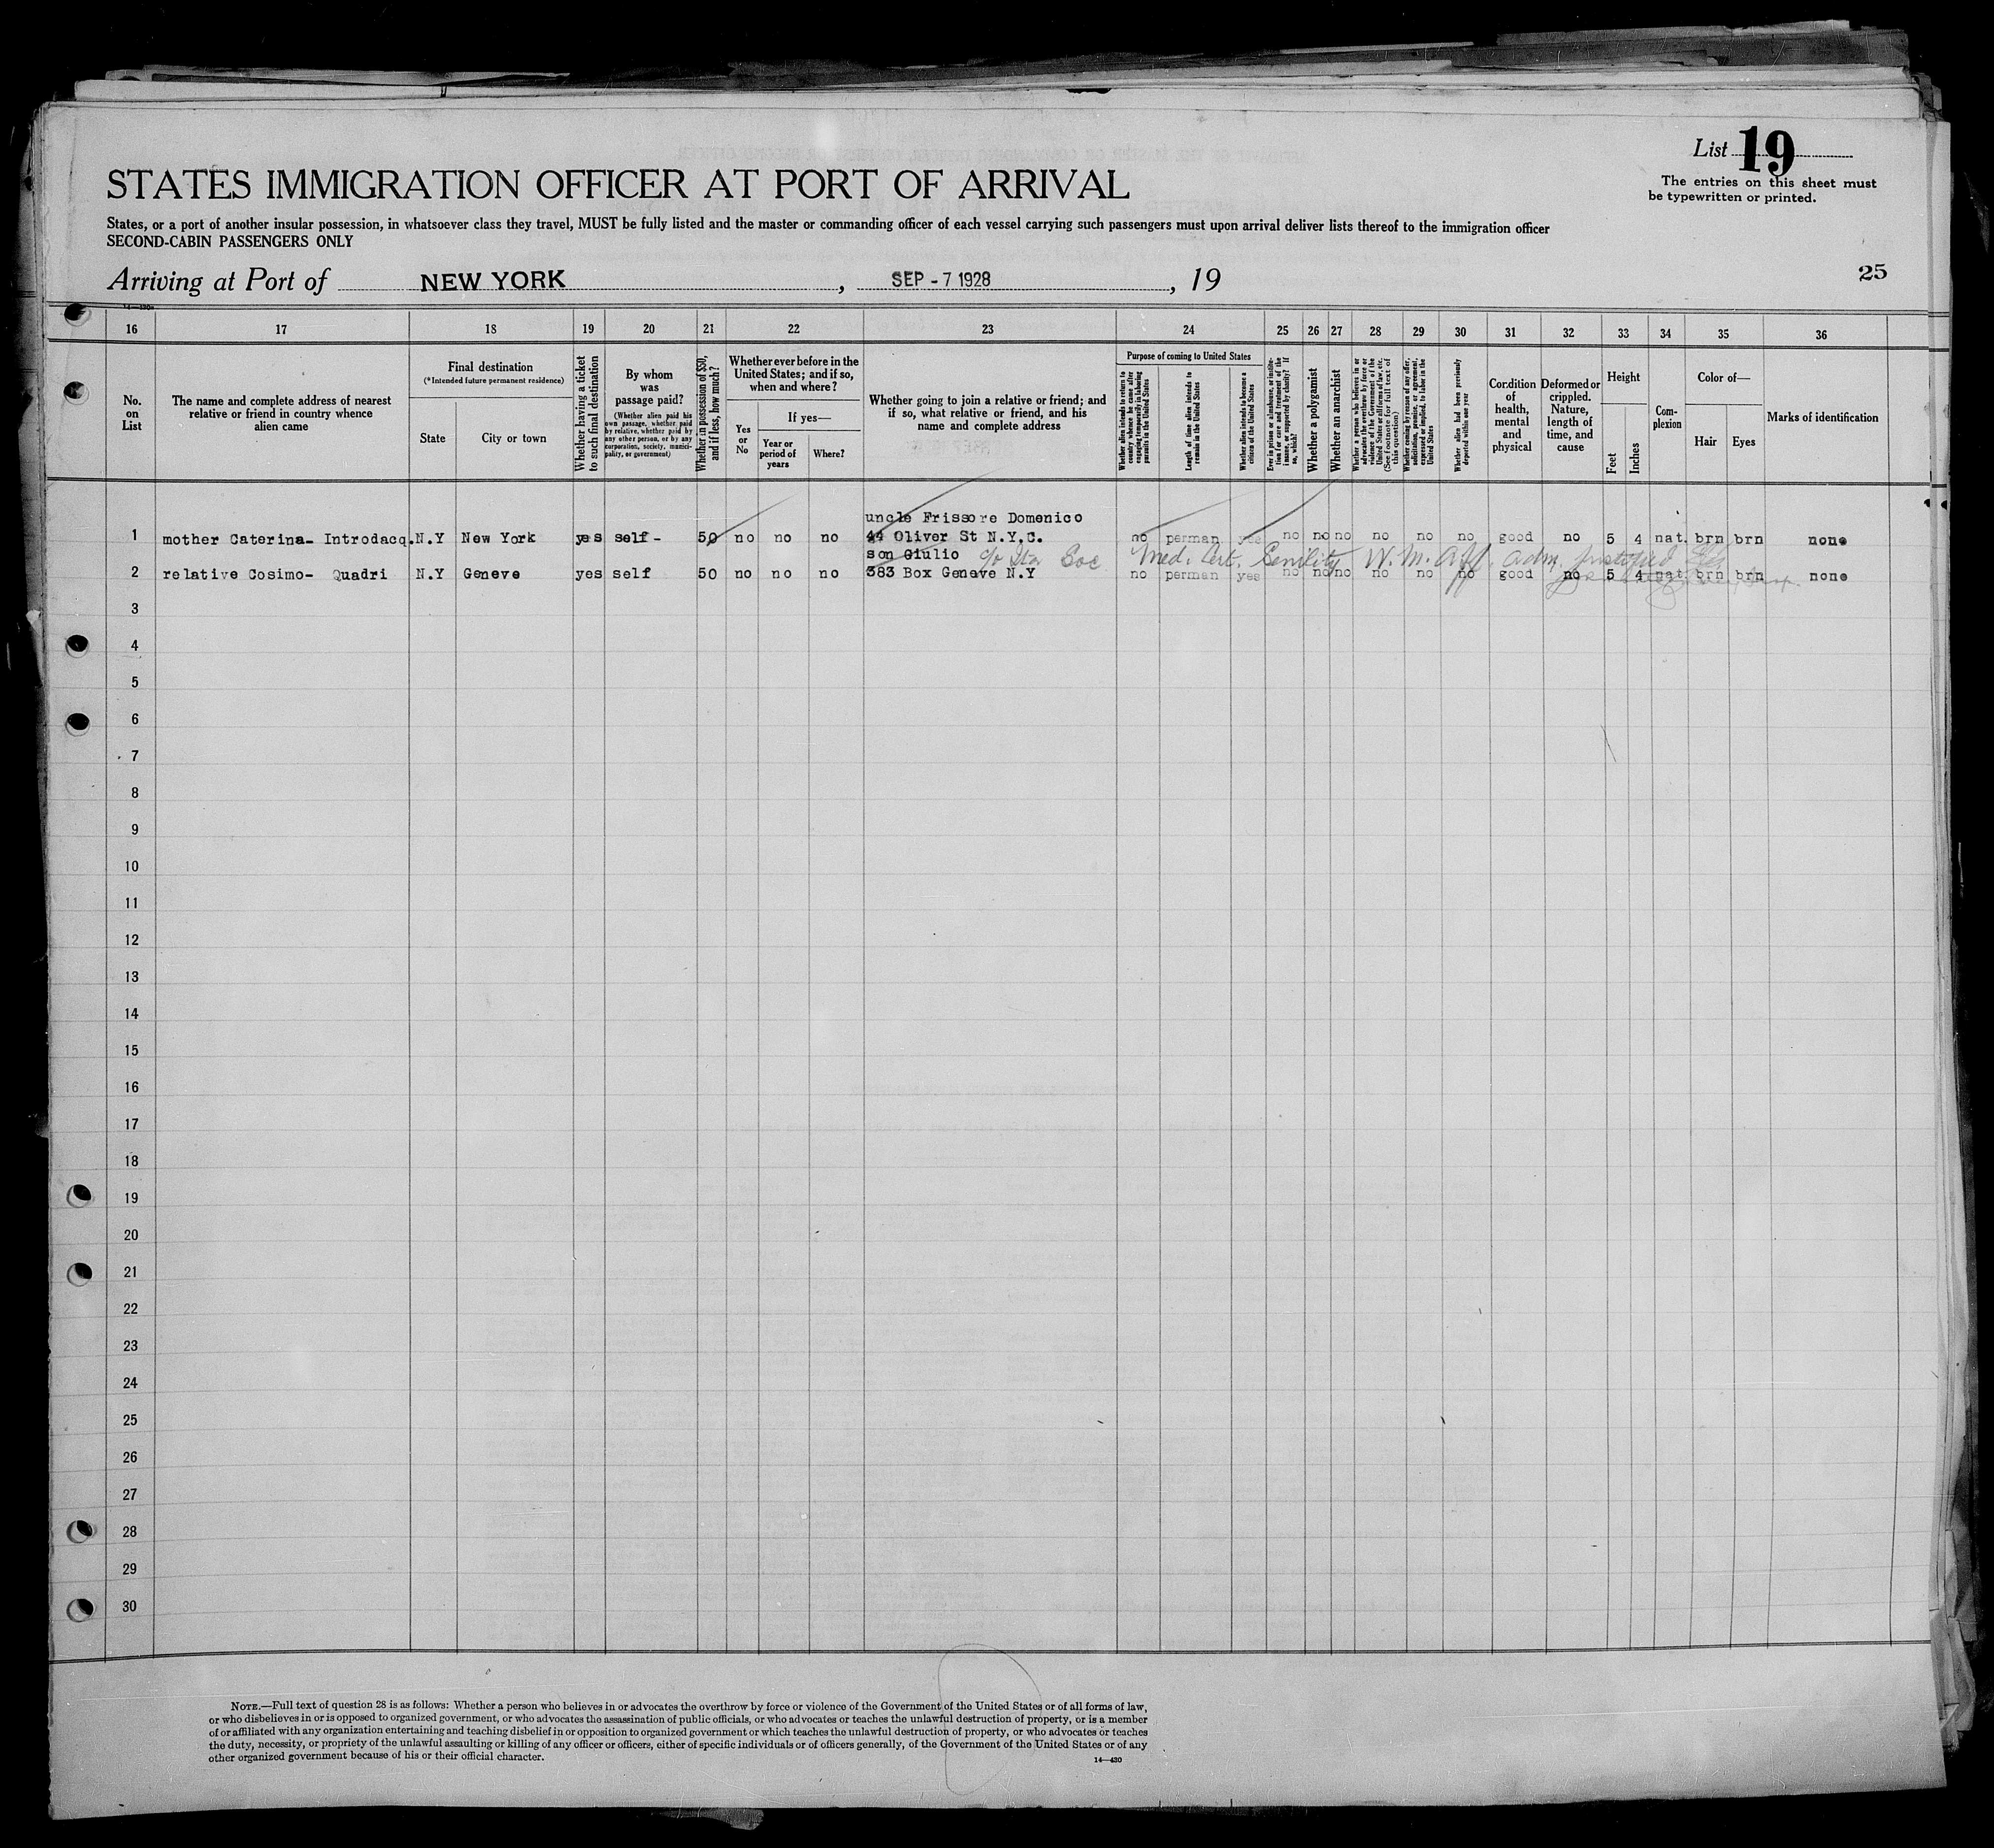 List 19
The entries on this sheet must
be typewritten or printed.
STATES IMMIGRATION OFFICER AT PORT OF ARRIVAL
States, or a port of another insular possession, in whatsoever class they travel, MUST be fully listed and the master or commanding officer of each vessel carrying such passengers must upon arrival deliver lists thereof to the immigration officer
SECOND-CABIN PASSENGERS ONLY
Arriving at Port of NEW YORK, SEP - 7 1928, 19
25
16 17 18 19 20 21 22 23 24 25 26 27 28 29 30 31 32 33 34 35 36
No. on List
The name and complete address of nearest
relative or friend in country whence
alien came
Final destination
(*Intended future permanent residence)
State
City or town
Whether having a ticket
to such final destination
By whom
was
passage paid?
(Whether alien paid his
own passage, whether paid
by relative, whether paid by
any other person, or by any
corporation, society, munici-
pality, or government)
Whether in possession of $50,
and if less, how much?
Whether ever before in the
United States; and if so,
when and where?
Yes or No
If yes—
Year or
period of
years
Where?
Whether going to join a relative or friend; and
if so, what relative or friend, and his
name and complete address
Purpose of coming to United States
Whether alien intends to return to
country whence he came after
engaging temporarily in laboring
pursuits in the United States
Length of time alien intends to
remain in the United States
Whether alien intends to become a
citizen of the United States
Ever in prison or almshouse, or institu-
tion for care and treatment of the
insane, or supported by charity? If
so, which?
Whether a polygamist
Whether an anarchist
Whether a person who believes in or
advocates the overthrow by force or
violence of the Government of the
United States or all forms of law, etc.
(See footnote for full text of
this question)
Whether coming by reason of any offer,
solicitation, promise, or agreement,
expressed or implied, to labor in the
United States
Whether alien had been previously
deported within one year
Condition
of
health,
mental
and
physical
Deformed or
crippled.
Nature,
length of
time, and
cause
Height
Feet
Inches
Com-
plexion
Color of—
Hair
Eyes
Marks of identification
uncle Frissore Domenico
1 mother Caterina- Introdacq. N.Y New York yes self - 50 no no no 44 Oliver St N.Y.C. no perman yes no no no no no no good no 5 4 nat. brn brn none
son Giulio c/o Ita Soc Med. Cert. Senility W. M. Aff. adm. justified
2 relative Cosimo- Quadri N.Y Geneve yes self 50 no no no 383 Box Geneve N.Y no perman yes no no no no no no good no 5 4 nat. brn brn none
3
4
5
6
7
8
9
10
11
12
13
14
15
16
17
18
19
20
21
22
23
24
25
26
27
28
29
30
NOTE.—Full text of question 28 is as follows: Whether a person who believes in or advocates the overthrow by force or violence of the Government of the United States or of all forms of law,
or who disbelieves in or is opposed to organized government, or who advocates the assassination of public officials, or who advocates or teaches the unlawful destruction of property, or is a member
of or affiliated with any organization entertaining and teaching disbelief in or opposition to organized government or which teaches the unlawful destruction of property, or who advocates or teaches
the duty, necessity, or propriety of the unlawful assaulting or killing of any officer or officers, either of specific individuals or of officers generally, of the Government of the United States or of any
other organized government because of his or their official character.
14—430